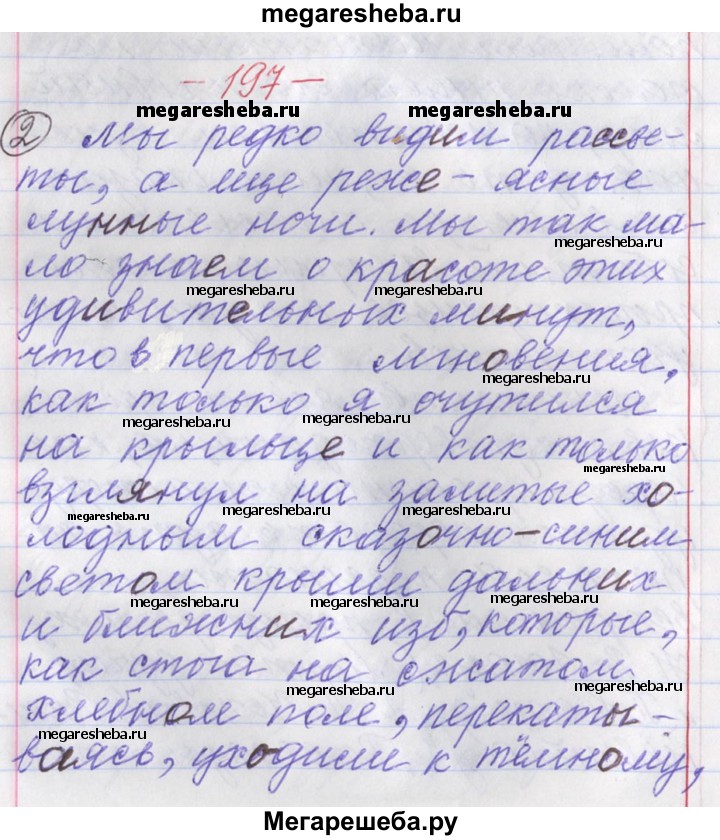 megaresheba.ru
- 197 -
megaresheba.ru megaresheba.ru
2 Мы редко видим рассве-
ты, а еще реже - ясные
лунные ночи. Мы так ма-
megaresheba.ru
ло знаем о красоте этих
megaresheba.ru megaresheba.ru
удивительных минут,
что в первые мгновения,
megaresheba.ru
как только я очутился
megaresheba.ru megaresheba.ru
на крыльце и как только
megaresheba.ru
взглянул на залитые хо-
megaresheba.ru megaresheba.ru
лодным сказочно-синим
светом крыши дальних
megaresheba.ru megaresheba.ru megaresheba.ru
и ближних изб, которые,
как стога на сжатом
megaresheba.ru megaresheba.ru
хлебном поле, перекаты-
ваясь, уходили к тёмному,
Мегарешеба.ру